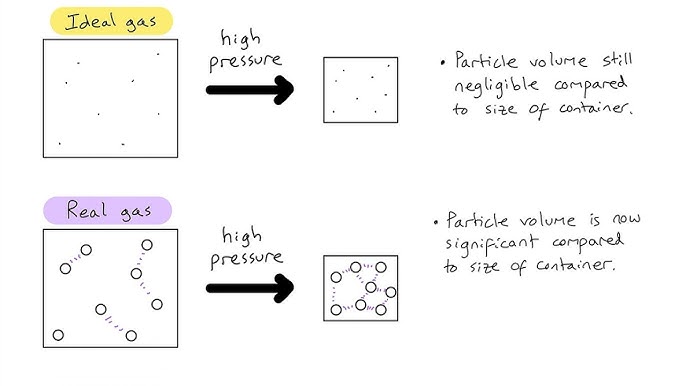 Ideal gas
high
pressure
• Particle volume still
negligible compared
to size of container.
Real gas
high
pressure
• Particle volume is now
significant compared
to size of container.